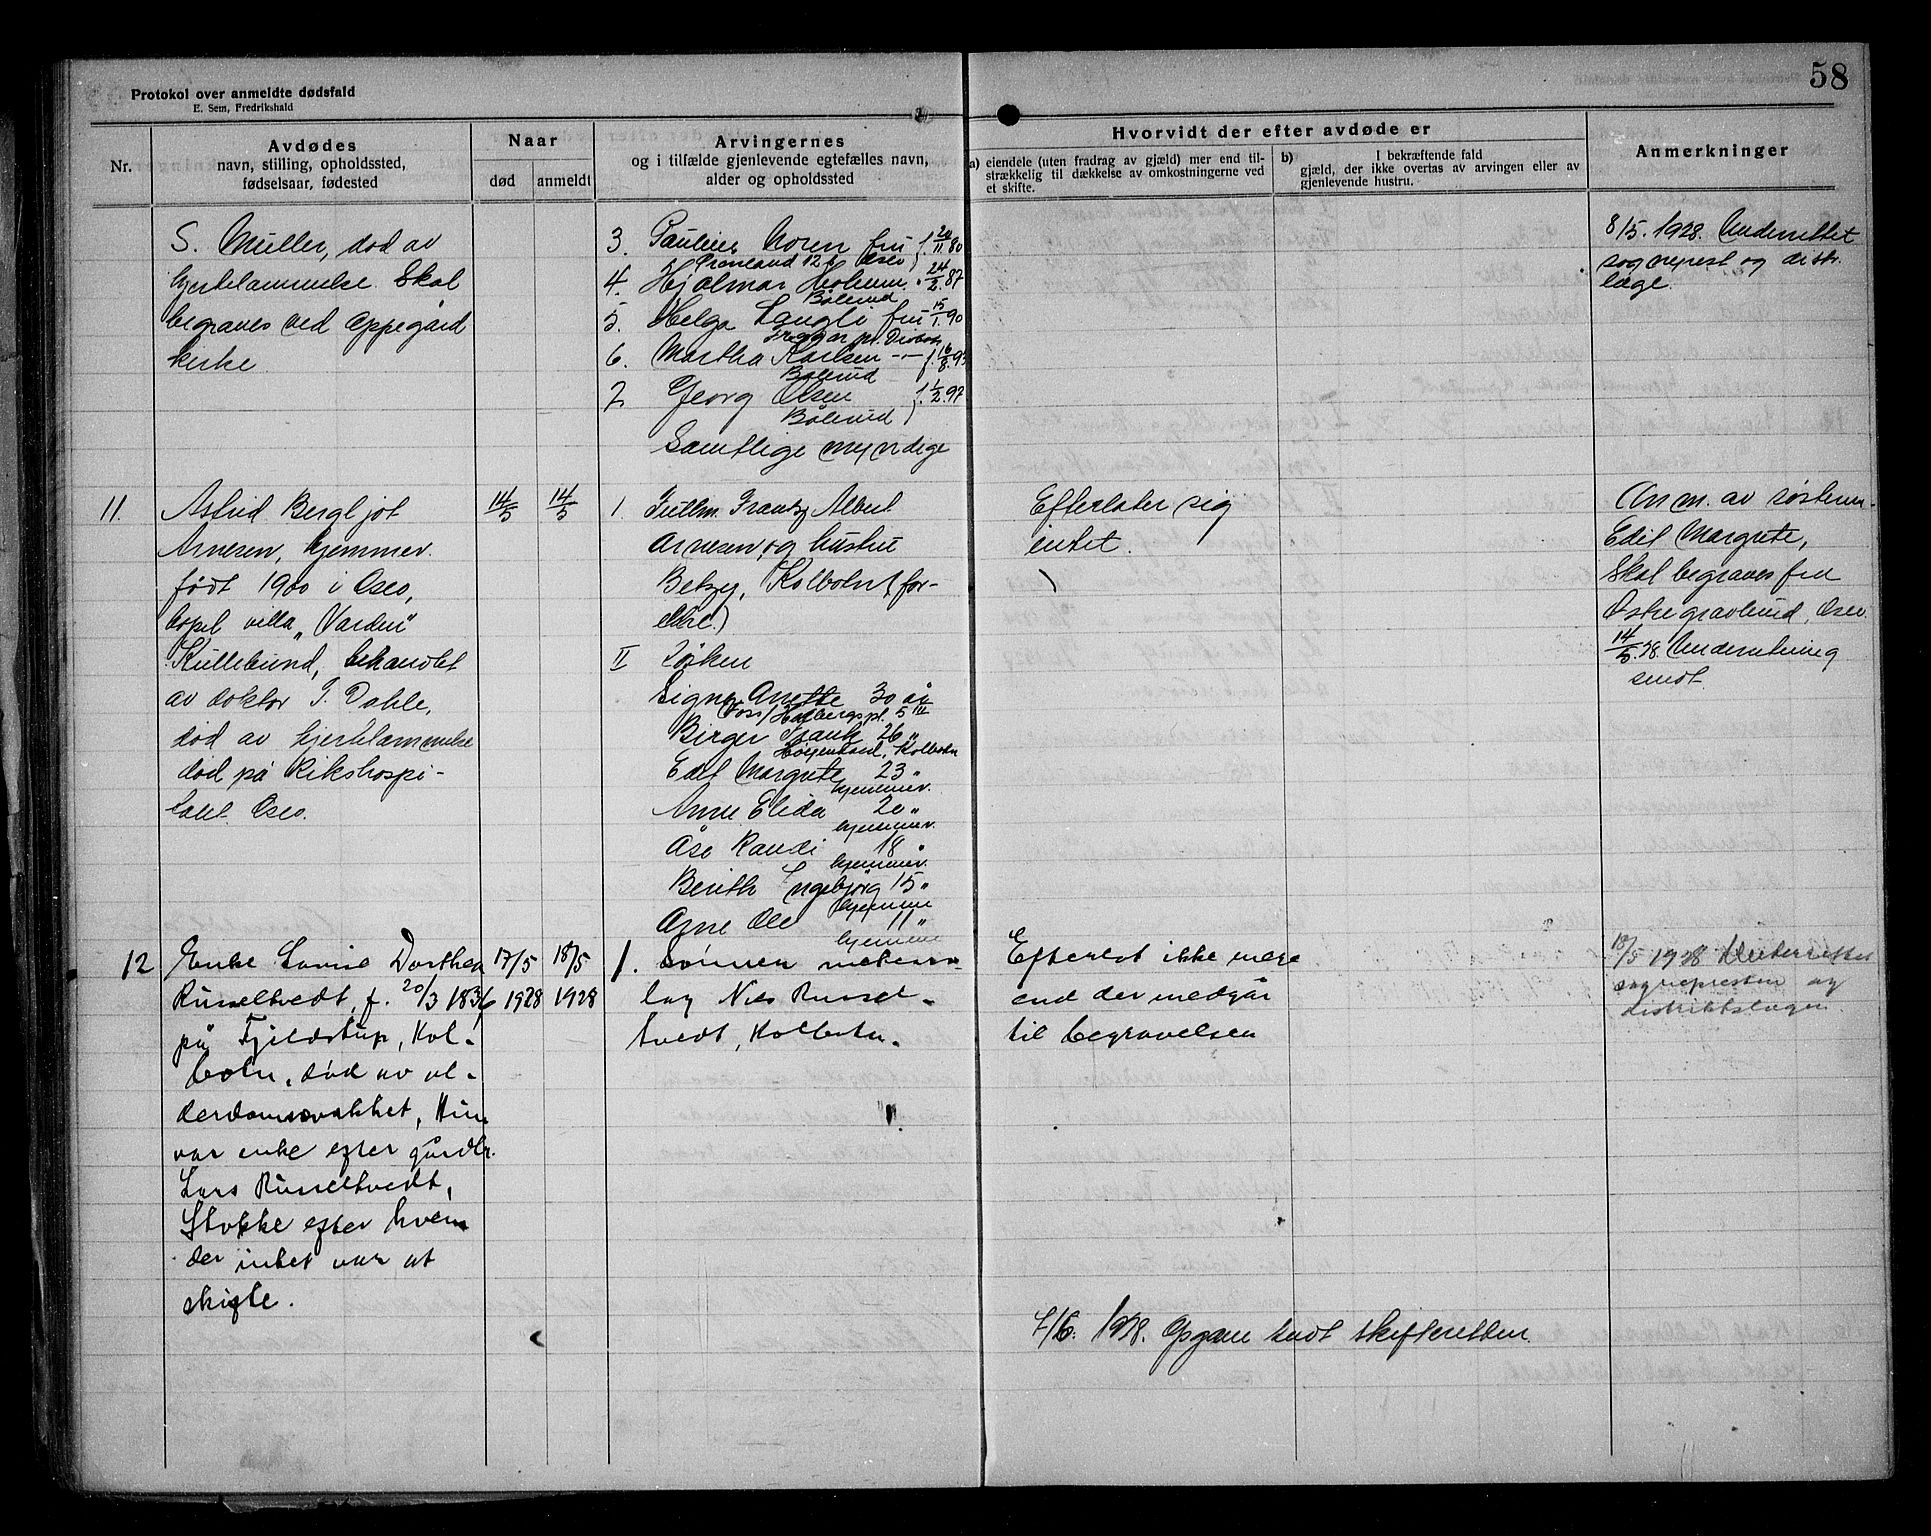 58
Protokol over anmeldte dødsfald
E. Sem, Fredrikshald
Nr.
Avdødes
navn, stilling, opholdssted,
fødselsaar, fødested
Naar
død
anmeldt
Arvingernes
og i tilfælde gjenlevende egtefælles navn,
alder og opholdssted
Hvorvidt der efter avdøde er
a) eiendele (uten fradrag av gjæld) mer end til-
strækkelig til dækkelse av omkostningerne ved
et skifte.
b) I bekræftende fald
gjæld, der ikke overtas av arvingen eller av
gjenlevende hustru.
Anmerkninger
S. Müller, død av
hjertelammelse. Skal
begraves ved Oppegård
kirke
3. Pauline Noren fru f. 20/11 80
Grønland 12 Oslo
4. Hjalmar 24/2 87
Bålerud
5. Helga Langli fru 15/1 90
Drøbak
6. Martha Karlsen -"- f. 16/8 93
Bålerud
7. Georg Olsen f. 1/2 97
Bålerud
Samtlige myndige
8/5. 1928. Underrettet
sogneprest og distr.
læge.
11. Astrid Bergljot
Arnesen, hjemmev.
født 1900 i Oslo,
bopel villa "Varden"
Kullebund, behandlet
av doktor I. Dahle,
død av hjertelammelse
død på Rikshospi-
talet Oslo.
14/5
14/5
1. Fullm. Frantz Albert
Arnesen og hustru
Betzy, Kolbotn (for-
eldre)
II Søsken
Signe Anette 30 år
Voss, Holbergspl. 5 III
Birger Frank 26 "
Kolbotn
Edit Margrete 23 "
hjemmev.
Anne Elida 20 "
hjemmev.
Åse Randi 18 "
hjemmev.
Berith Ingebjørg 15 "
hjemme
Arne Ole 11 "
hjemme
Efterlater sig
intet.
Anm. av søsteren
Edit Margrete,
Skal begraves fra
Østre gravlund, Oslo.
14/5. 28. Underretning
sendt.
12 Enke Lovise Dorthea
Russeltvedt, f. 20/3 1836
på Fjeldstup, Kol-
botn, død av al-
derdomssvakhet, Hun
var enke efter gårdbr.
Lars Russeltvedt,
Stokke efter hvem
der intet var at
skifte.
17/5
1928
18/5
1928
1. Sønnen
Nils Russel-
tvedt, Kolbotn.
Efterlot ikke mere
end der medgår
til begravelsen
18/5 1928 Underrettet
sognepresten og
distriktslægen.
7/6. 1928. Opgave sendt skifteretten.